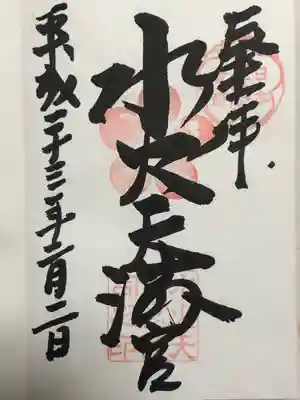 奉拝
水火天満宮
平成二十三年二月二日